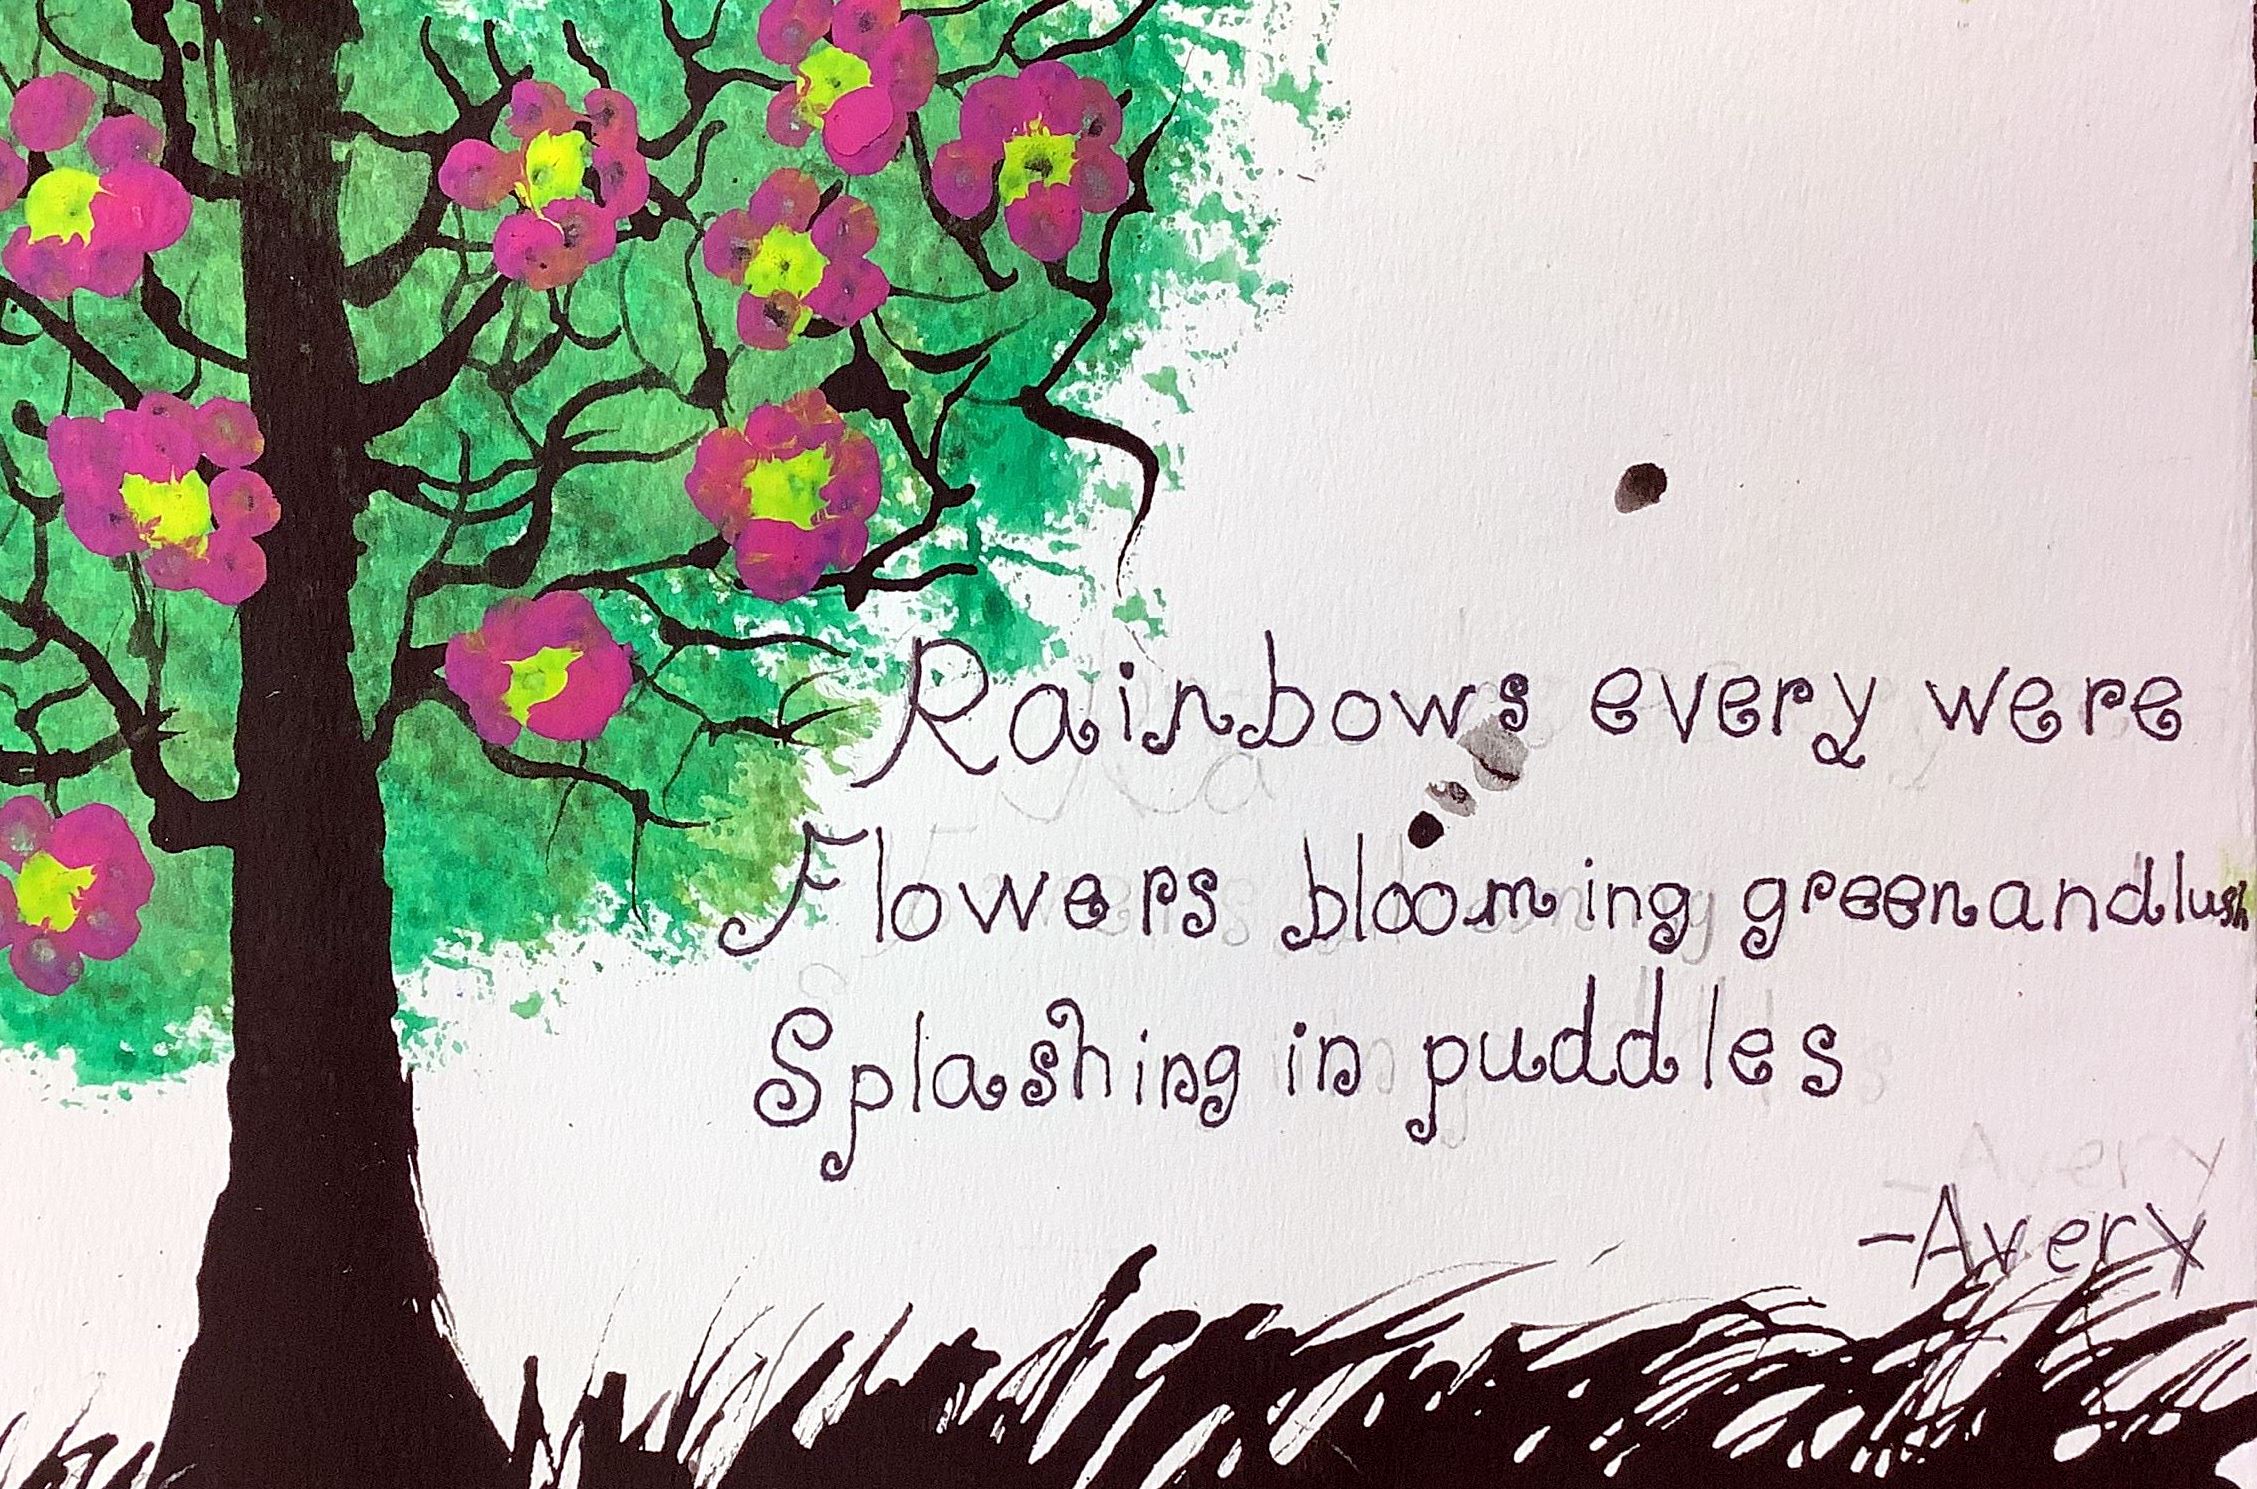 Rainbows every were
Flowers blooming green and lush
Splashing in puddles
-Avery